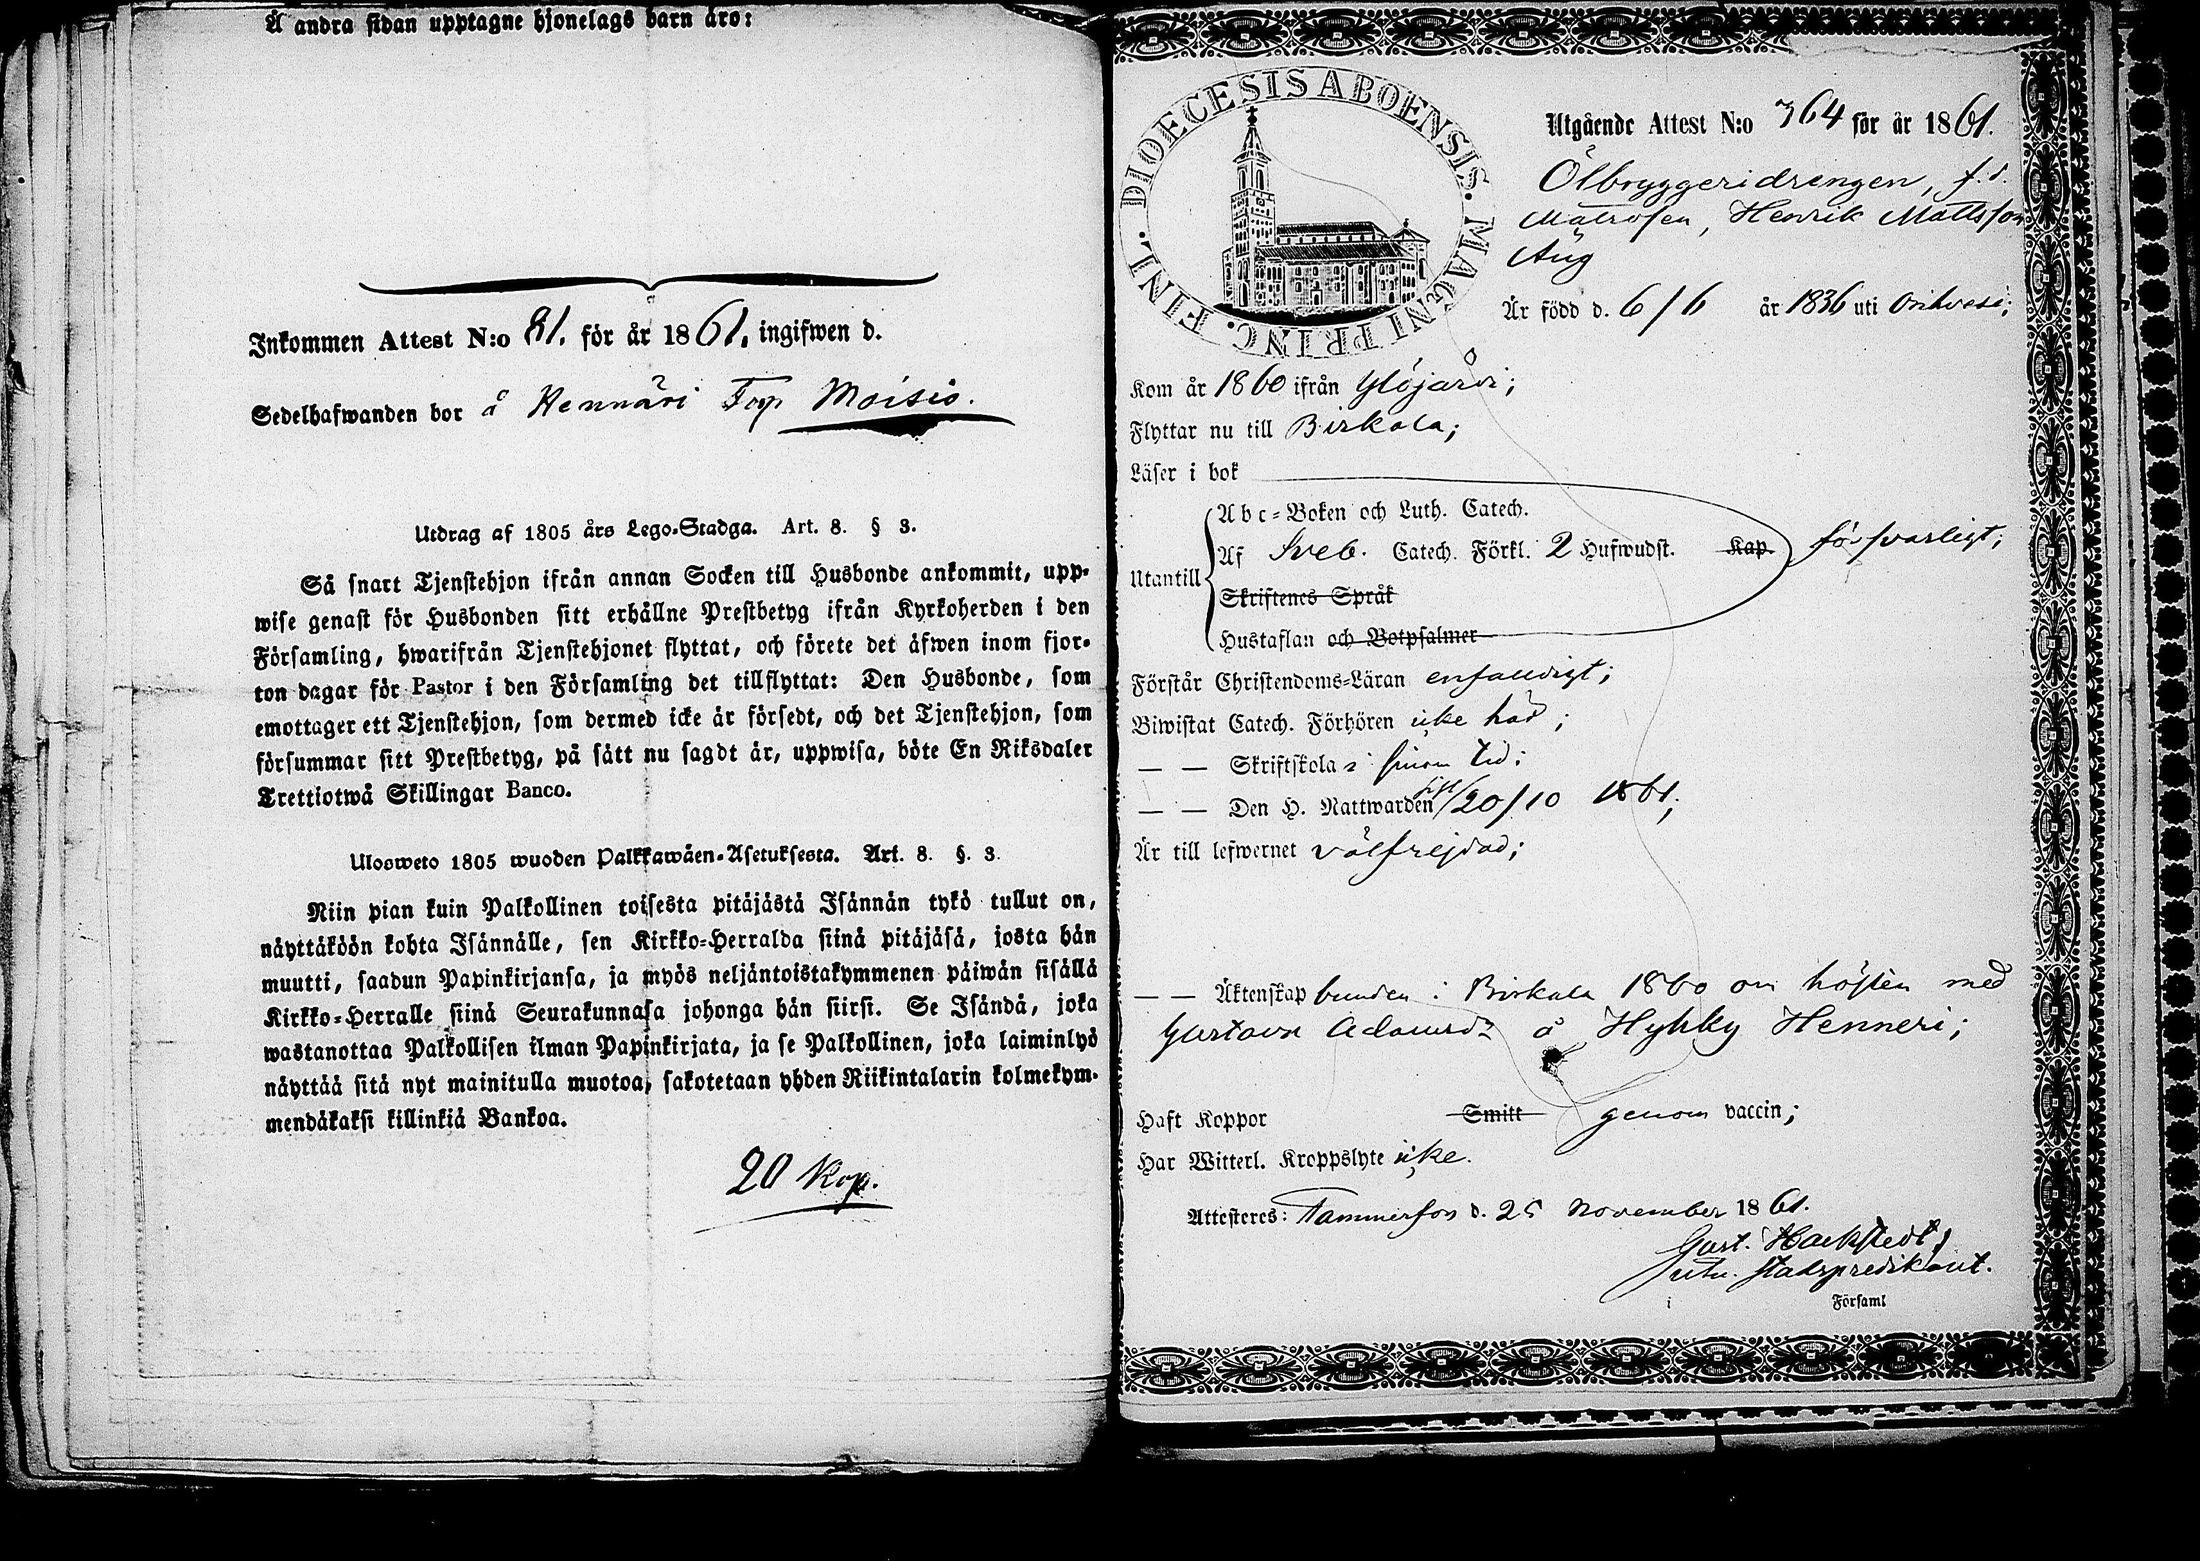 Å andra sidan upptagne hjonelags barn äro:
Inkommen Attest N:o 81. för år 1861. ingifwen d.
Sedelhafwanden bor å Hennäri Torp Moisio.
Utdrag af 1805 års Lego-Stadga. Art. 8. § 3.
Så snart Tjenstehjon ifrån annan Socken till Husbonde ankommit, upp-
wise genast för Husbonden sitt erhållne Prestbetyg ifrån Kyrkoherden i den
Församling, hwarifrån Tjenstehjonet flyttat, och förete det äfwen inom fjor-
ton dagar för Pastor i den Församling det tillflyttat: Den Husbonde, som
emottager ett Tjenstehjon, som dermed icke är försedt, och det Tjenstehjon, som
försummar sitt Prestbetyg, på sätt nu sagdt är, uppwisa, böte En Riksdaler
Trettiotwå Skillingar Banco.
Ulosweto 1805 wuoden Palkkawäen-Asetuksesta. Art. 8. §. 3.
Niin pian kuin Palkollinen toisesta pitäjästä Isännän tykö tullut on,
näyttäköön kohta Isännälle, sen Kirkko-Herralda siinä pitäjäsä, josta hän
muutti, saadun Papinkirjansa, ja myös neljäntoistakymmenen päiwän sisällä
Kirkko-Herralle siinä Seurakunnasa johonga hän siirsi. Se Isändä, joka
wastanottaa Palkollisen ilman Papinkirjata, ja se Palkollinen, joka laiminlyö
näyttää sitä nyt mainitulla muotoa, sakotetaan yhden Riikintalarin kolmekym-
mendäkaksi killinkiä Bankoa.
20 Kop.
DIOECESIS ABOENSIS. MAGNI PRINC. FINL.
Utgående Attest N:o 364 för år 1861.
Ölbryggeridrengen, f.d.
Matrosen, Henrik Mattsson
Äng
Är född d. 6/6 år 1836 uti Orihvesi;
Kom år 1860 ifrån Ylöjärvi;
Flyttar nu till Birkala;
Läser i bok
Abc-Boken och Luth. Catech.
Utantill Af Sveb. Catech. Förkl. 2 Hufwudst. Kap. försvarligt;
Skriftenes Språk
Hustaflan och Botpsalmer
Förstår Christendoms-Läran enfaldigt;
Biwistat Catech. Förhören icke här;
— — Skriftskola i sinom tid;
— — Den H. Nattwarden sist 20/10 1861;
Är till lefwernet välfrejdad;
— — Äktenskap bunden i Birkala 1860 om hösten med
Gustava Adamsdr å Hyhky Henneri;
Haft Koppor Smitt genom vaccin;
Har Witterl. Kroppslyte icke.
Attesteres: Tammerfors d. 25 November 1861.
Gust. Hackstedt,
stadspredikant.
i Församl